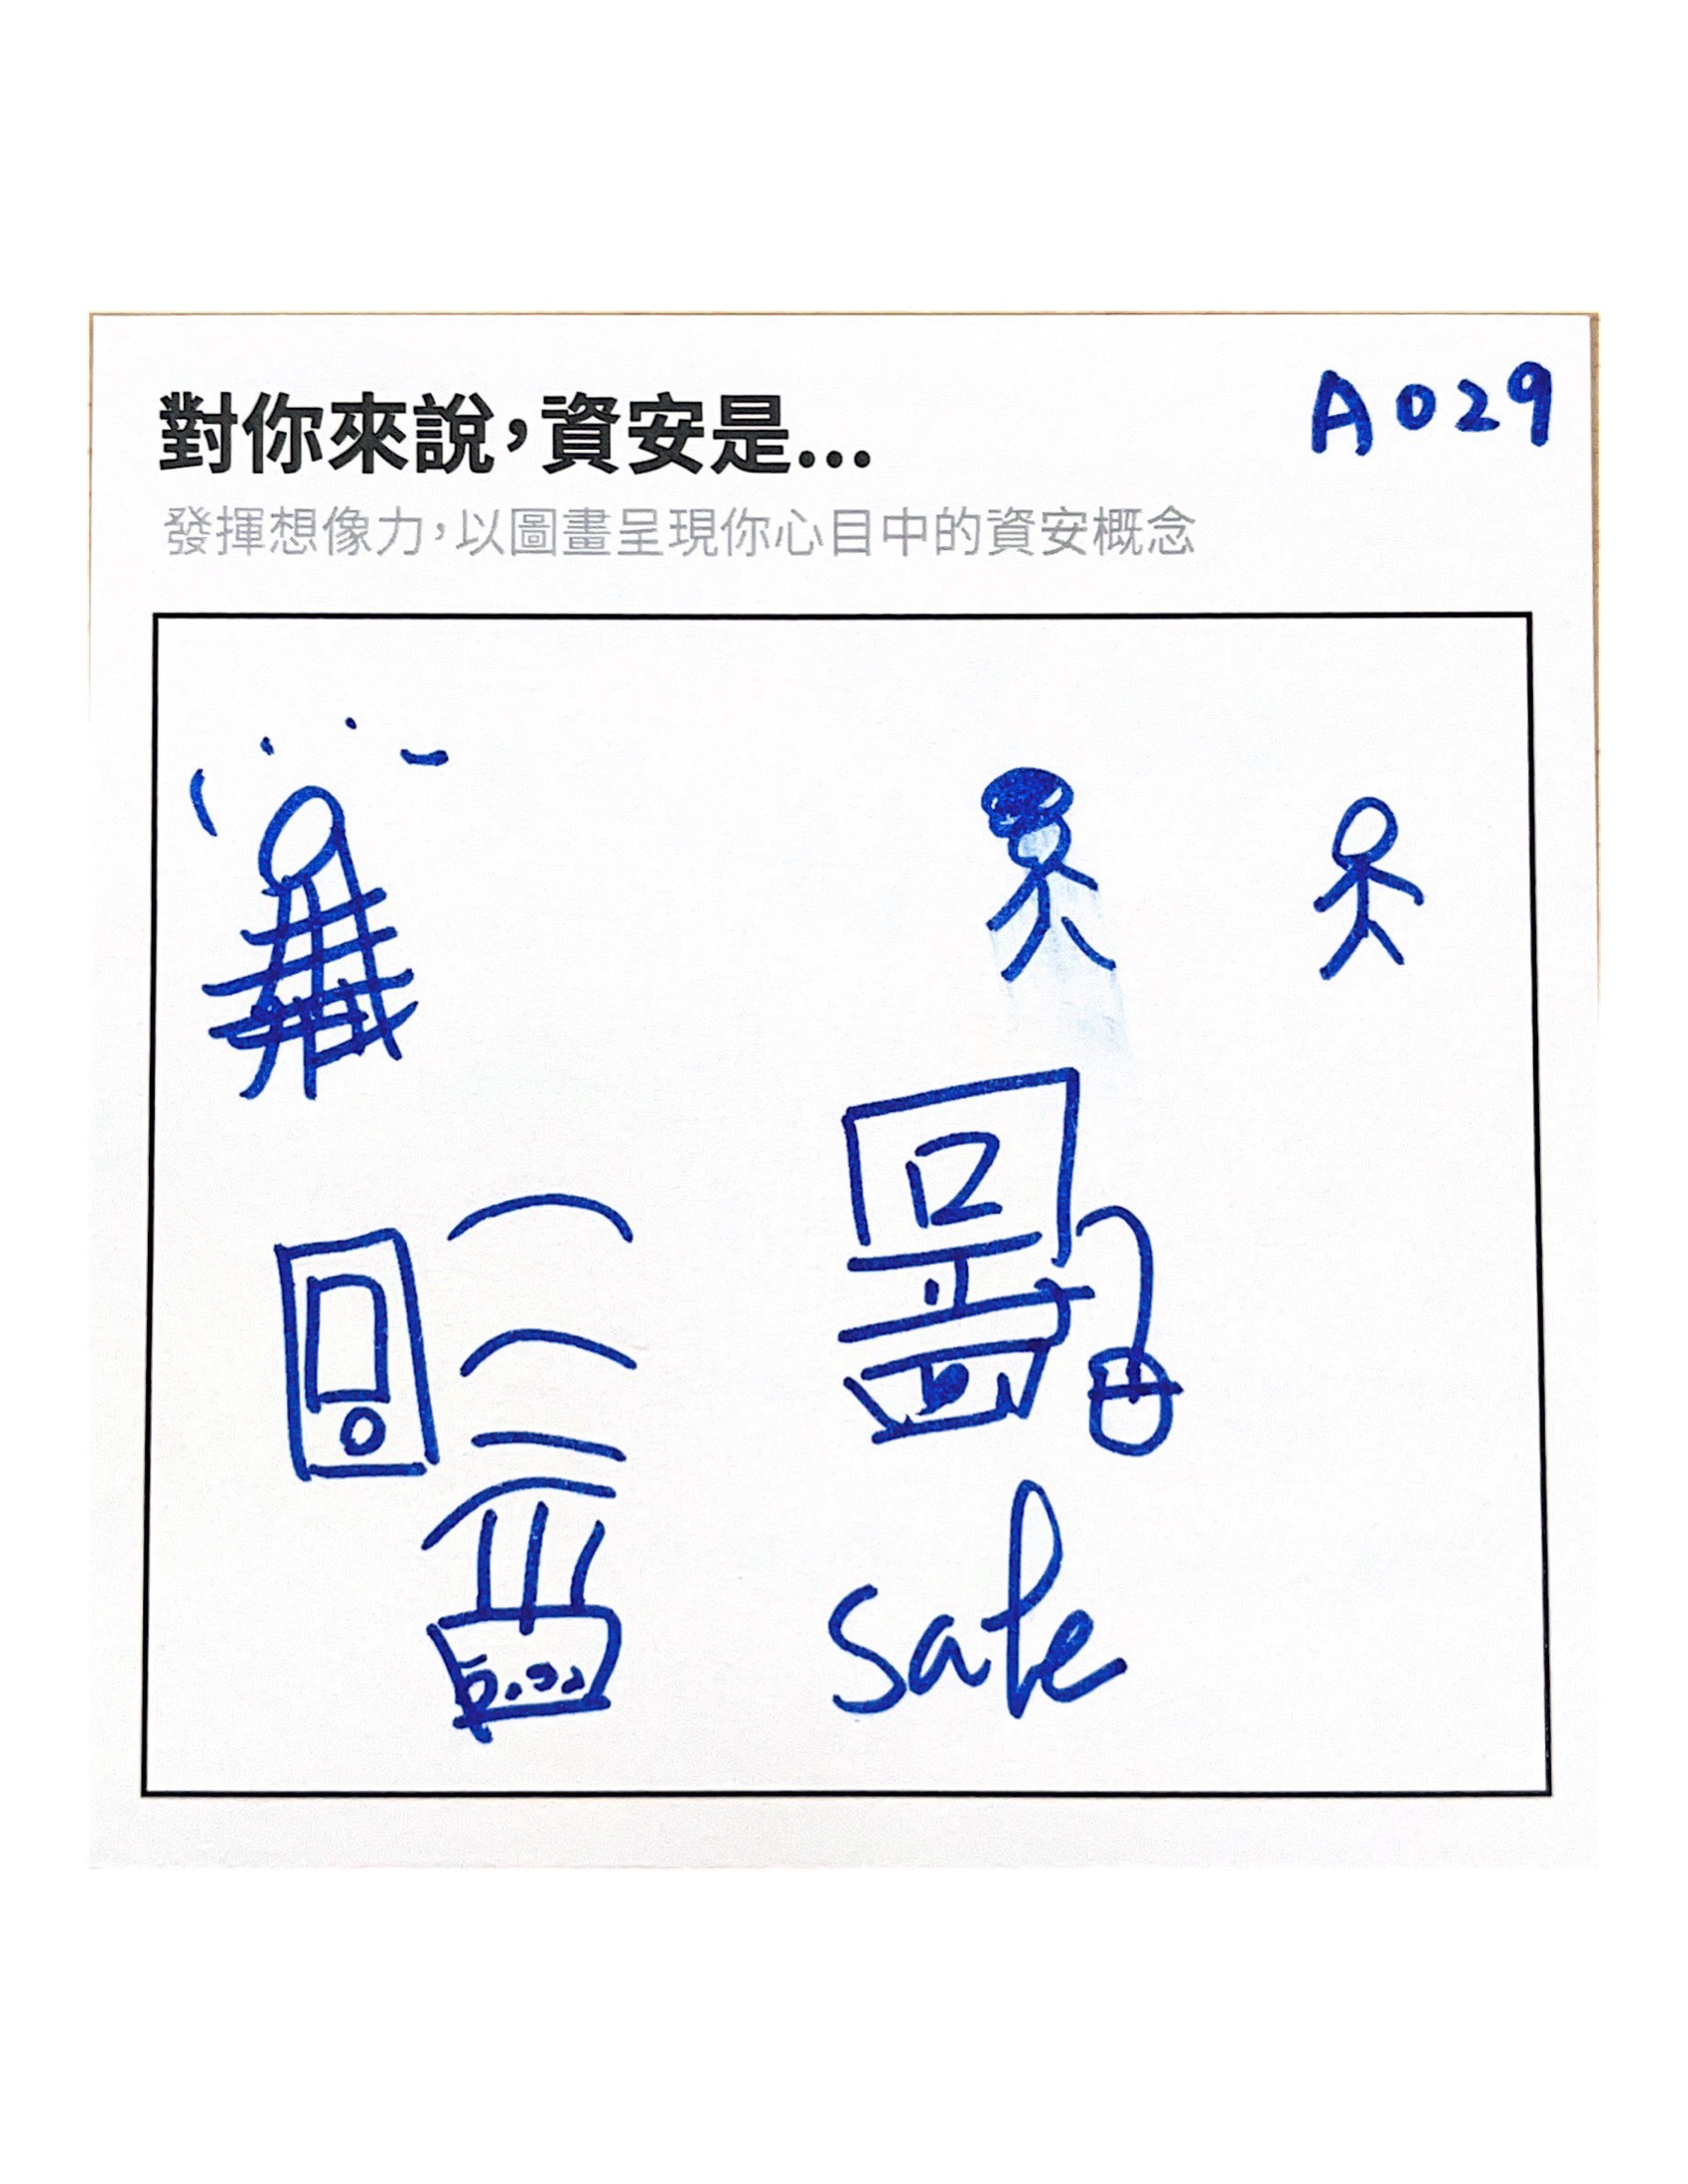 對你來說,資安是...
A029
發揮想像力,以圖畫呈現你心目中的資安概念
safe